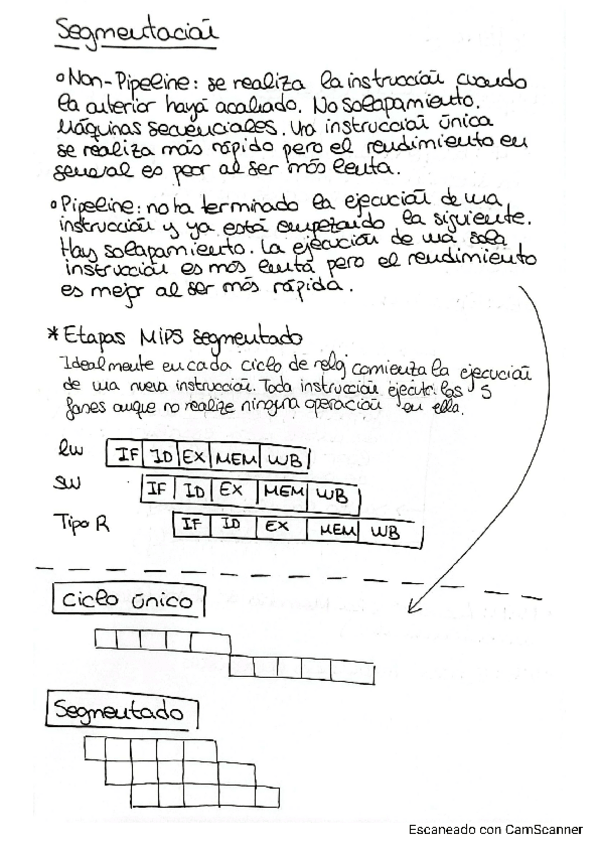 Segmentación
° Non-Pipeline: se realiza la instrucción cuando
la anterior haya acabado. No solapamiento.
Máquinas secuenciales. Una instrucción única
se realiza más rápido pero el rendimiento en
general es peor al ser más lenta.
° Pipeline: no ha terminado la ejecución de una
instrucción y ya está empezando la siguiente.
Hay solapamiento. La ejecución de una sola
instrucción es más lenta pero el rendimiento
es mejor al ser más rápida.
* Etapas MIPS segmentado
Idealmente en cada ciclo de reloj comienza la ejecución
de una nueva instrucción. Toda instrucción ejecuta las 5
fases aunque no realize ninguna operación en ella.
lw IF ID EX MEM WB
sw IF ID EX MEM WB
Tipo R IF ID EX MEM WB
Ciclo único
Segmentado
Escaneado con CamScanner